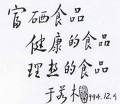 富硒食品
健康的食品
理想的食品
于若木
1994.12.4